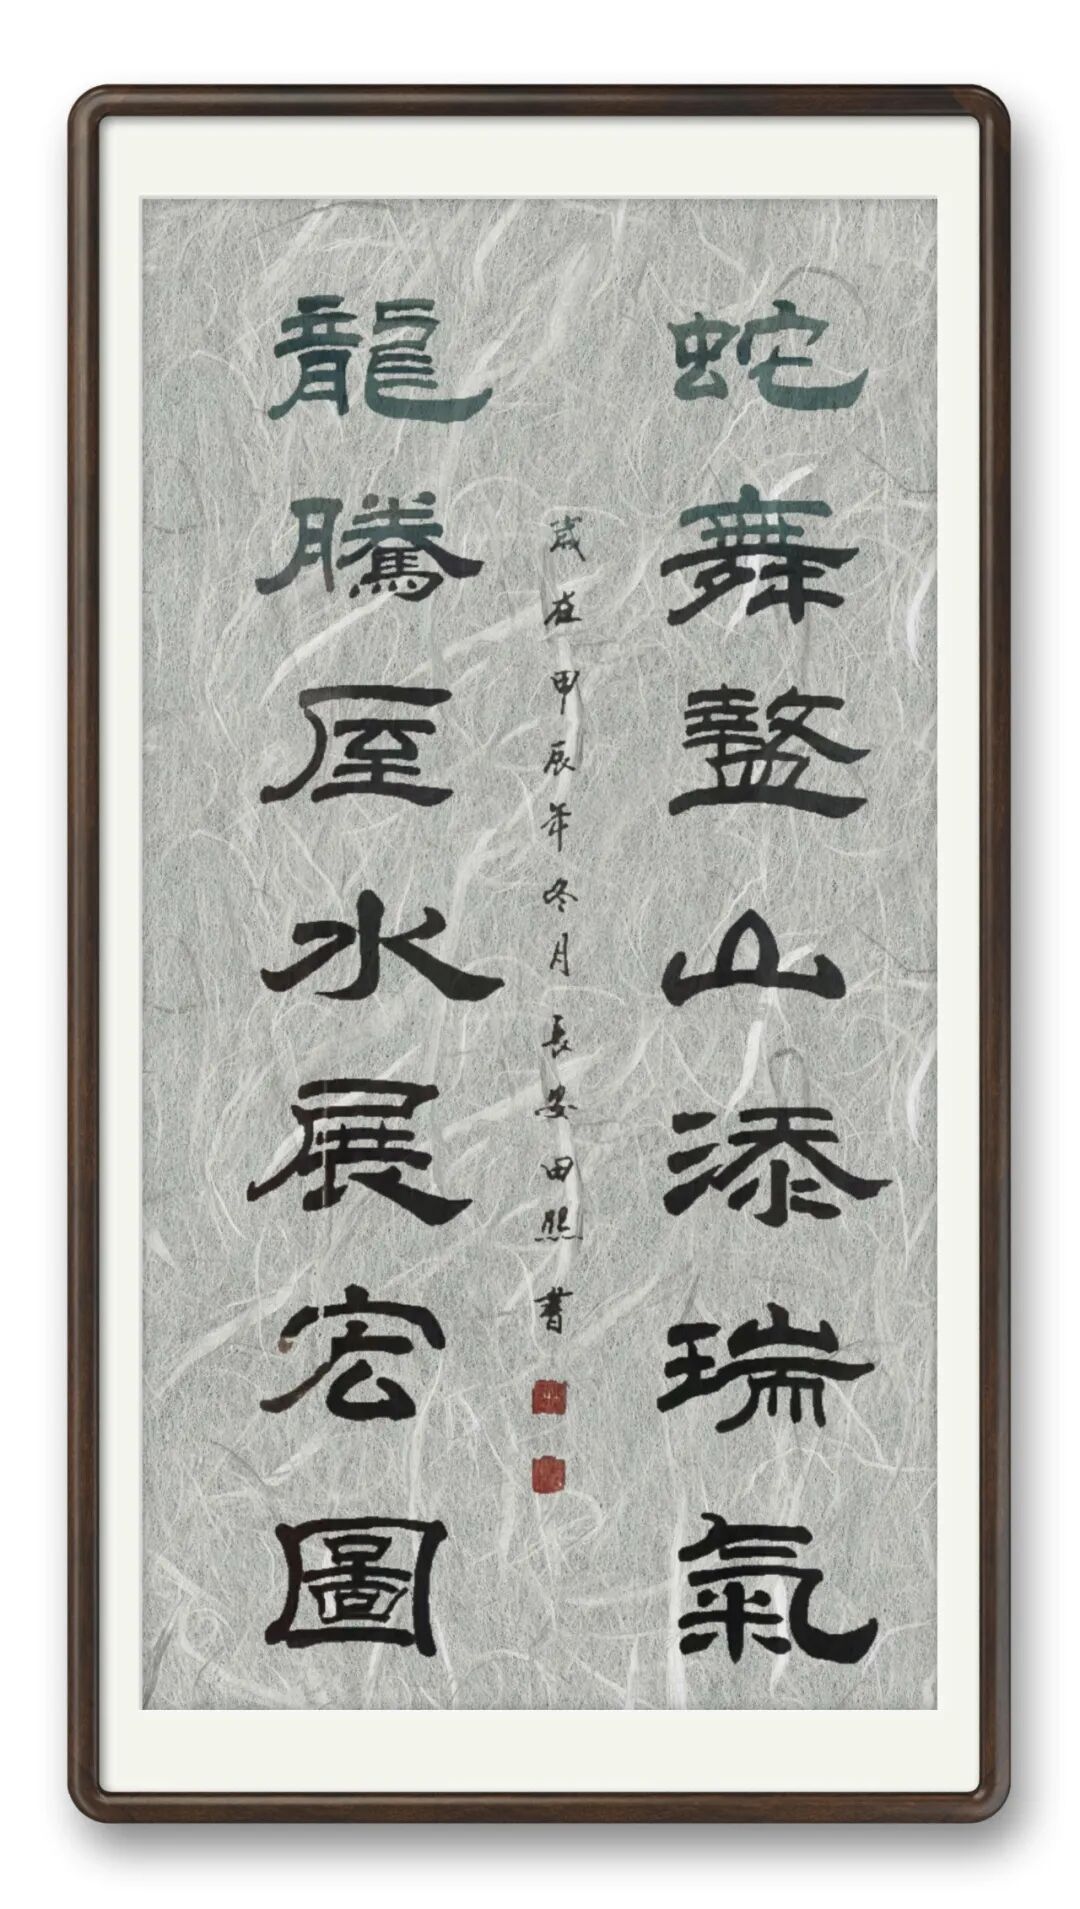 蛇舞盩山添瑞氣
龍騰厔水展宏圖
歲在甲辰年冬月長安田熙書